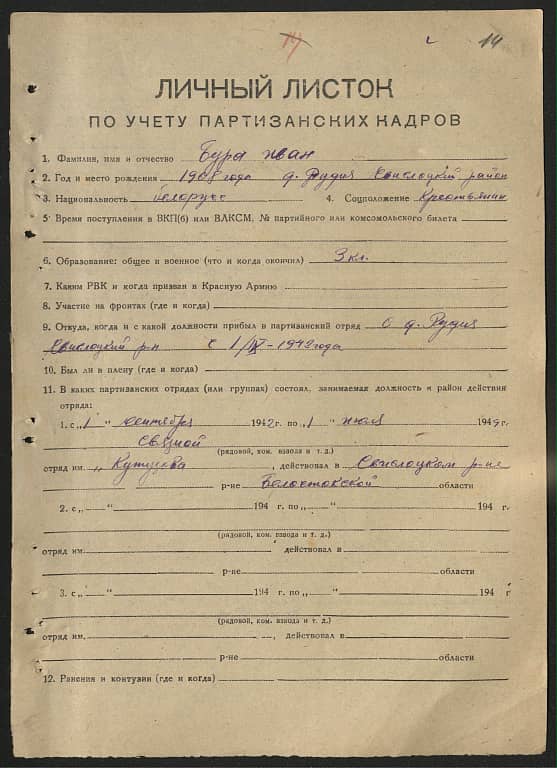 14 14
ЛИЧНЫЙ ЛИСТОК
ПО УЧЕТУ ПАРТИЗАНСКИХ КАДРОВ
1. Фамилия, имя и отчество Бура Иван
2. Год и место рождения 1908 года д. Рудня Свислоцкий район
3. Национальность белорус 4. Соцположение Крестьянин
5. Время поступления в ВКП(б) или ВЛКСМ, № партийного или комсомольского билета
6. Образование: общее и военное (что и когда окончил) 3 кл.
7. Каким РВК и когда призван в Красную Армию
8. Участие на фронтах (где и когда)
9. Откуда, когда и с какой должности прибыл в партизанский отряд с д. Рудня
Свислоцкий р-н с 1/IX-1942 года
10. Был ли в плену (где и когда)
11. В каких партизанских отрядах (или группах) состоял, занимаемая должность и район действия
отряда:
1. с „1" сентября 1942 г. по „1" июля 1944 г.
Связной
(рядовой, ком. взвода и т. д.)
отряд им. „Кутузова , действовал в Свислоцком р-не
р-не Белостокской области
2. с „ " 194 г. по „ " 194 г.
(рядовой, ком. взвода и т. д.)
отряд им. действовал в
р-не области
3. с „ " 194 г. по „ " 194 г
(рядовой, ком. взвода и т. д.)
отряд им. , действовал в
р-не области
12. Ранения и контузии (где и когда)